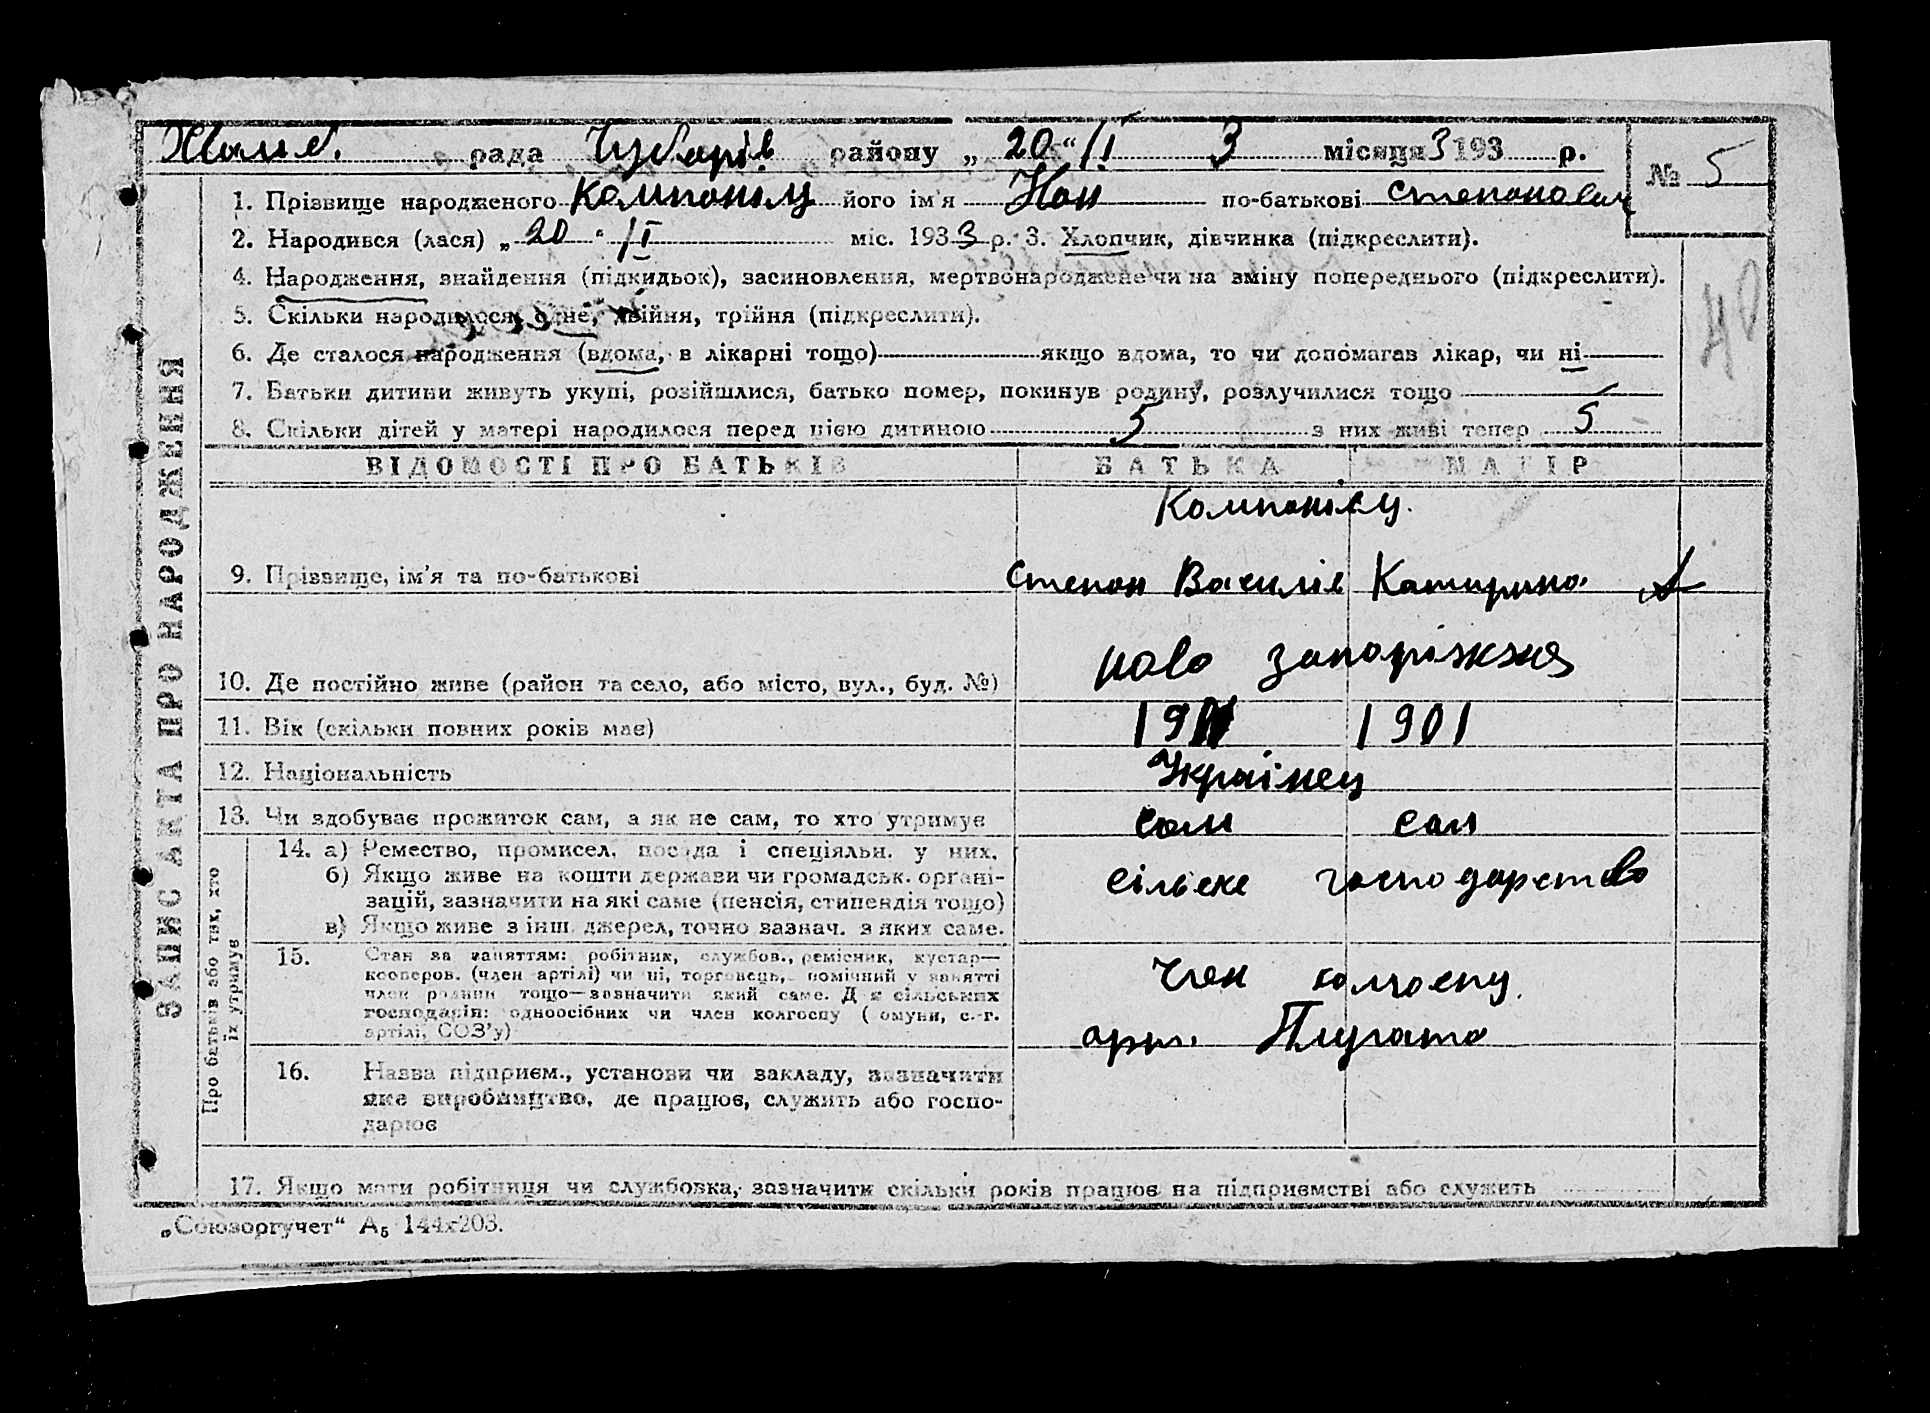 рада Чубарів району „ 20 “ II 3 місяця 3 193 р.
№ 5
1. Прізвище народженого Компанієц його ім'я по-батькові Степанович
2. Народився (лася) „ 20 “ II міс. 1933 р. 3. Хлопчик, дівчинка (підкреслити).
4. Народження, знайдення (підкидьок), засиновлення, мертвонароджене чи на зміну попереднього (підкреслити).
5. Скільки народилося: одне, двійня, трійня (підкреслити).
6. Де сталося народження (вдома, в лікарні тощо) якщо вдома, то чи допомагав лікар, чи ні
7. Батьки дитини живуть укупі, розійшлися, батько помер, покинув родину, розлучилися тощо
8. Скільки дітей у матері народилося перед цією дитиною 5 з них живі тепер 5
40
ЗАПИС АКТА ПРО НАРОДЖЕННЯ
ВІДОМОСТІ ПРО БАТЬКІВ БАТЬКА МАТІР
Компанієц.
9. Прізвище, ім'я та по-батькові Степан Василів Катирина
10. Де постійно живе (район та село, або місто, вул., буд. №) ново запоріжжя
11. Вік (скільки повних років має) 1901
12. Національність Українец
13. Чи здобуває прожиток сам, а як не сам, то хто утримує сам сам
Про батьків або тих, хто
їх утримує
14. а) Ремество, промисел, посада і спеціяльн. у них.
б) Якщо живе на кошти держави чи громадськ. органі-
зацій, зазначити на які саме (пенсія, стипендія тощо)
в) Якщо живе з інш. джерел, точно зазнач. з яких саме.
сільске господарство
15. Стан за заняттям: робітник, службов., ремісник, кустар—
кооперов. (член артілі) чи ні, торговець, помічний у занятті
член родини тощо—зазначити який саме. Для сільських
господарів: одноосібник чи член колгоспу (комуни, с.-г.
артілі, СОЗ'у)
член колгоспу
арт. Плугатар
16. Назва підприєм., установи чи закладу, зазначити
яке виробництво, де працює, служить або госпо-
дарює
17. Якщо мати робітниця чи службовка, зазначити скільки років працює на підприємстві або служить
„Союзоргучет“ А₅ 144х203.